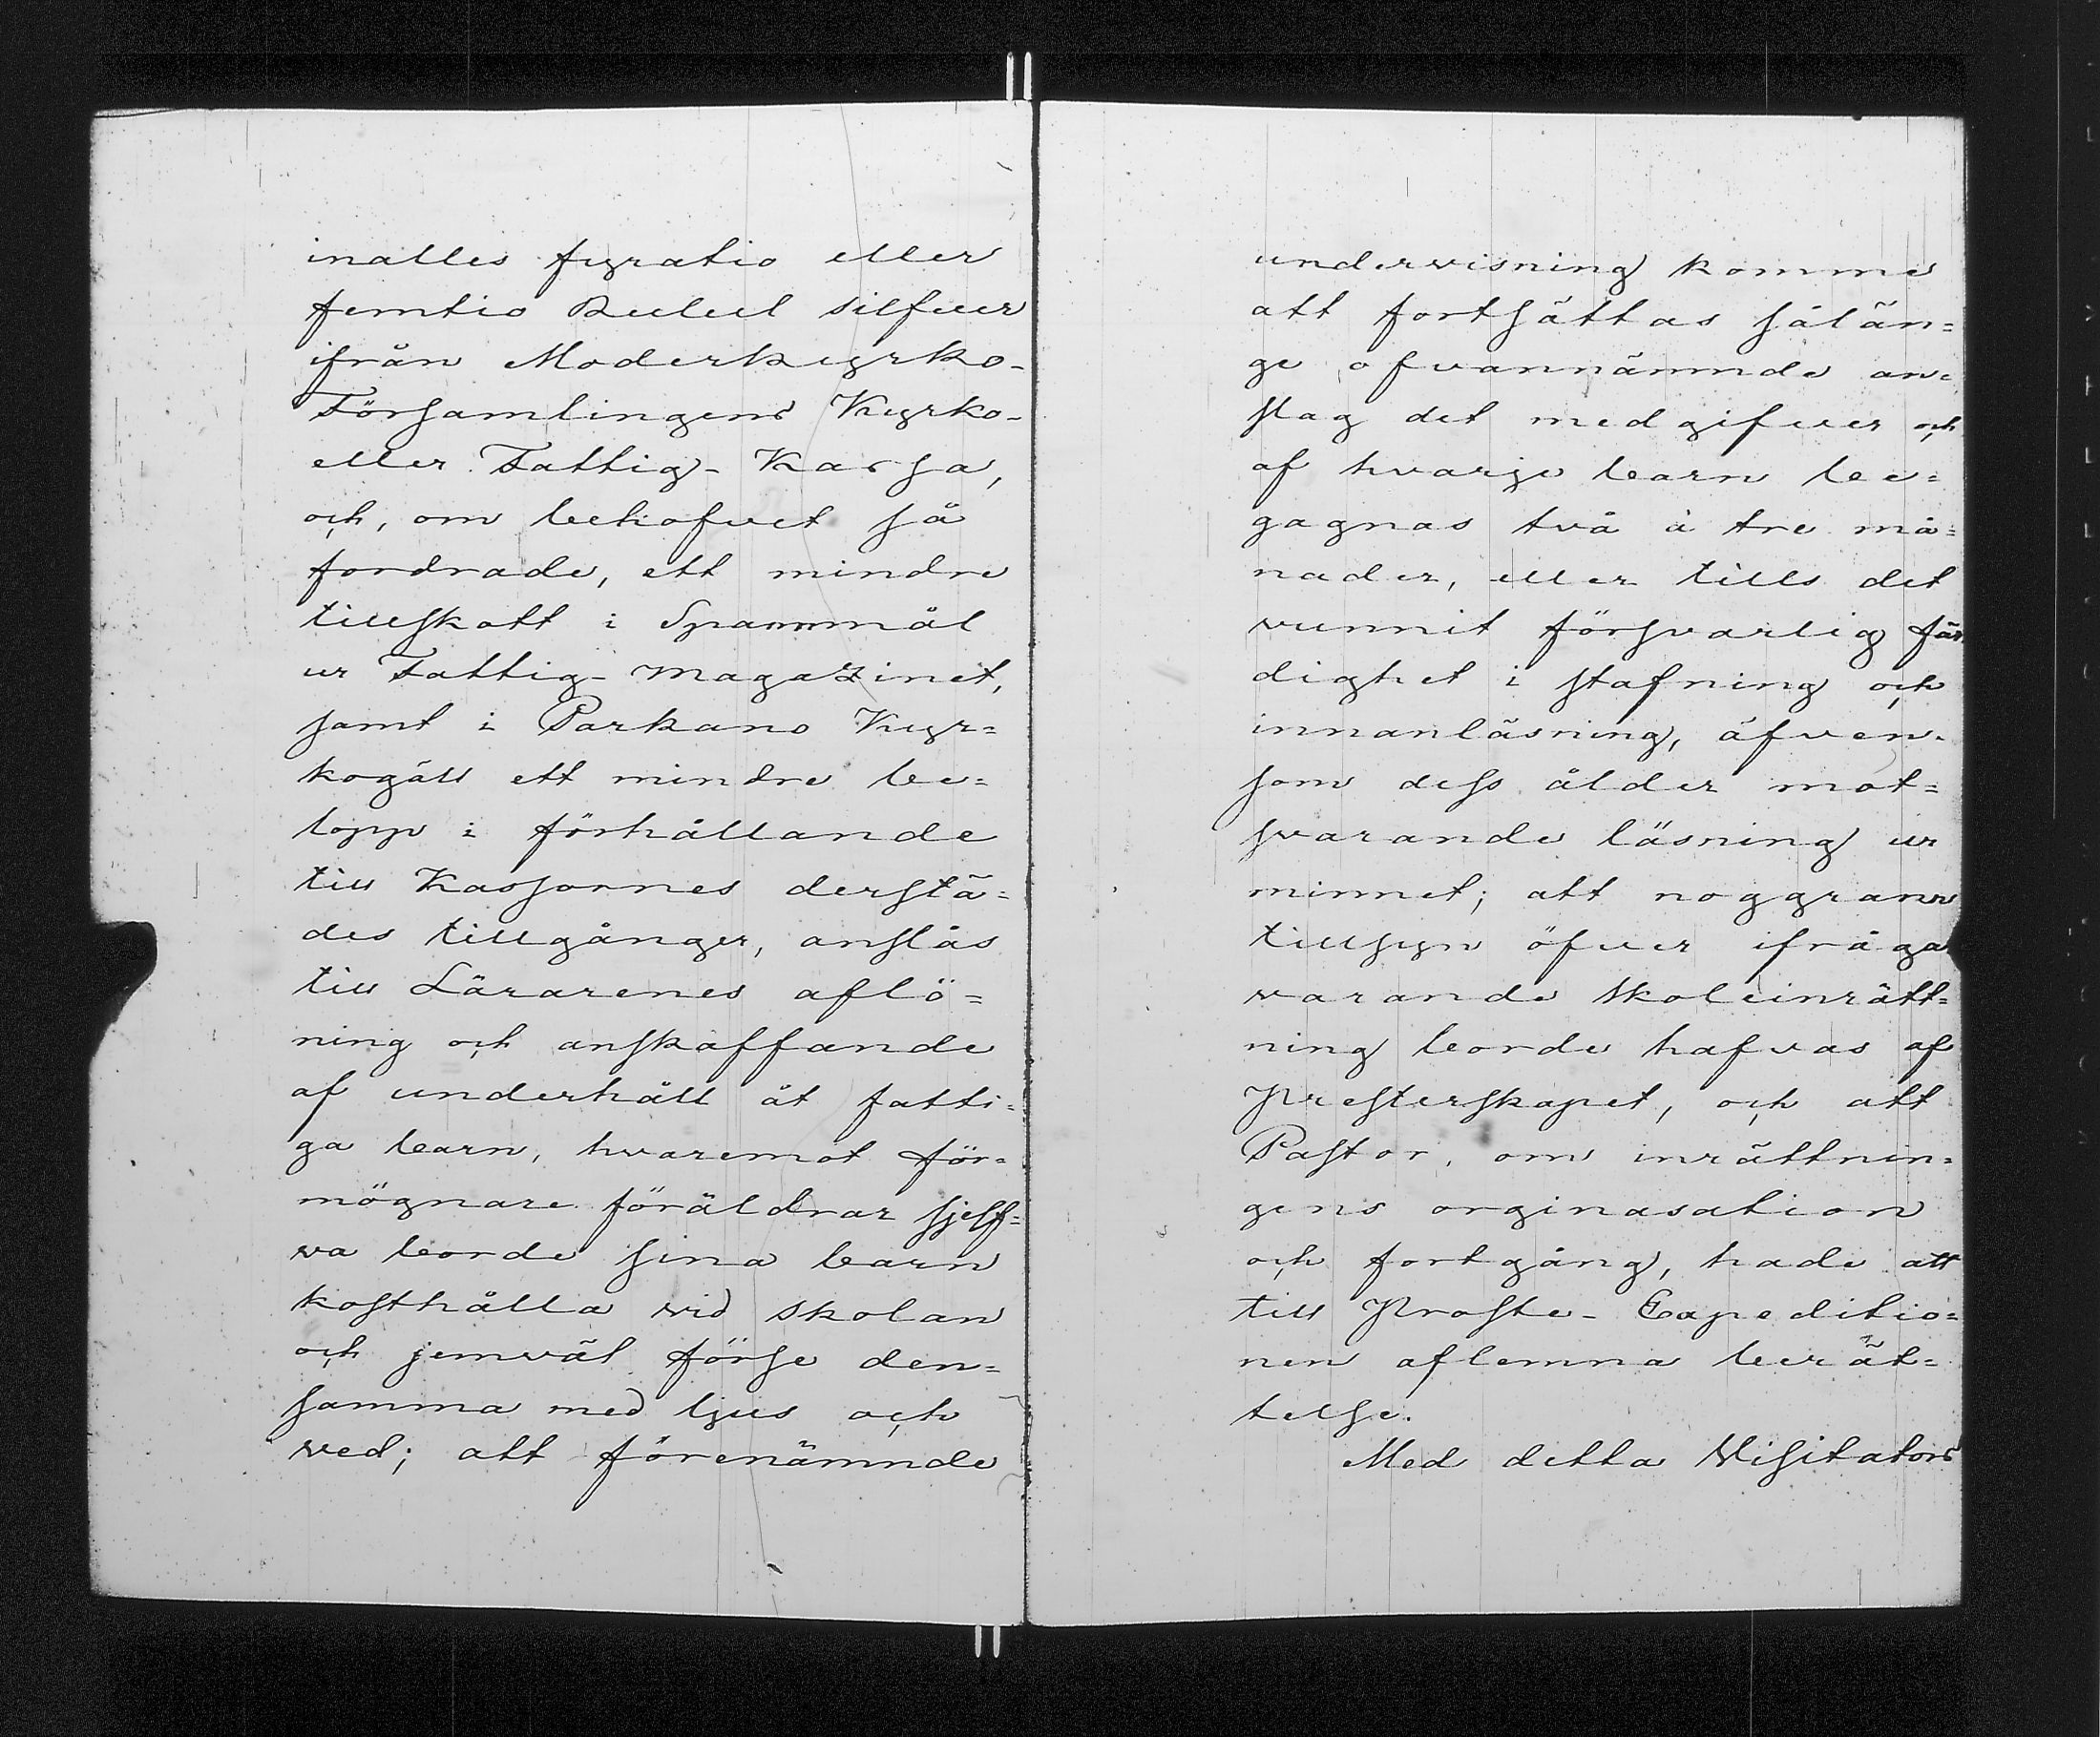 inalles fyratio eller
femtio Rubel silfver
ifrån Moderkyrko-
Församlingens Kyrko-
eller Fattig- Kassa,
och, om behofvet så
fordrade, ett mindre
tillskott i Spannmål
ur Fattig- Magazinet,
samt i Parkano Kyr=
kogäll ett mindre be=
lopp i förhållande
till Kassornes derstä=
des tillgånger, anslås
till Lärarenes aflö=
ning och anskaffande
af underhåll åt fatti=
ga barn, hvaremot för=
mögnare föräldrar sjelf=
va borde sina barn
kosthålla vid skolan
och jemväl förse den=
samma med ljus och
ved; att förenämnde
undervisning komme
att fortsättas sålän=
ge ofvannämnde an=
slag det medgifver och
af hvarje barn be=
gagnas två à tre må=
nader, eller tills det
vunnit försvarlig fär
dighet i stafning och
innanläsning, äfven-
som dess ålder mot=
svarande läsning ur
minnet; att noggrann
tillsyn öfver ifråga
varande skoleinrätt=
ning borde hafvas af
Presterskapet, och att
Pastor, om inrättnin=
gens orginasation
och fortgång, hade att
till Proste- Expeditio=
nen aflemna berät=
telse.
Med detta Visitators